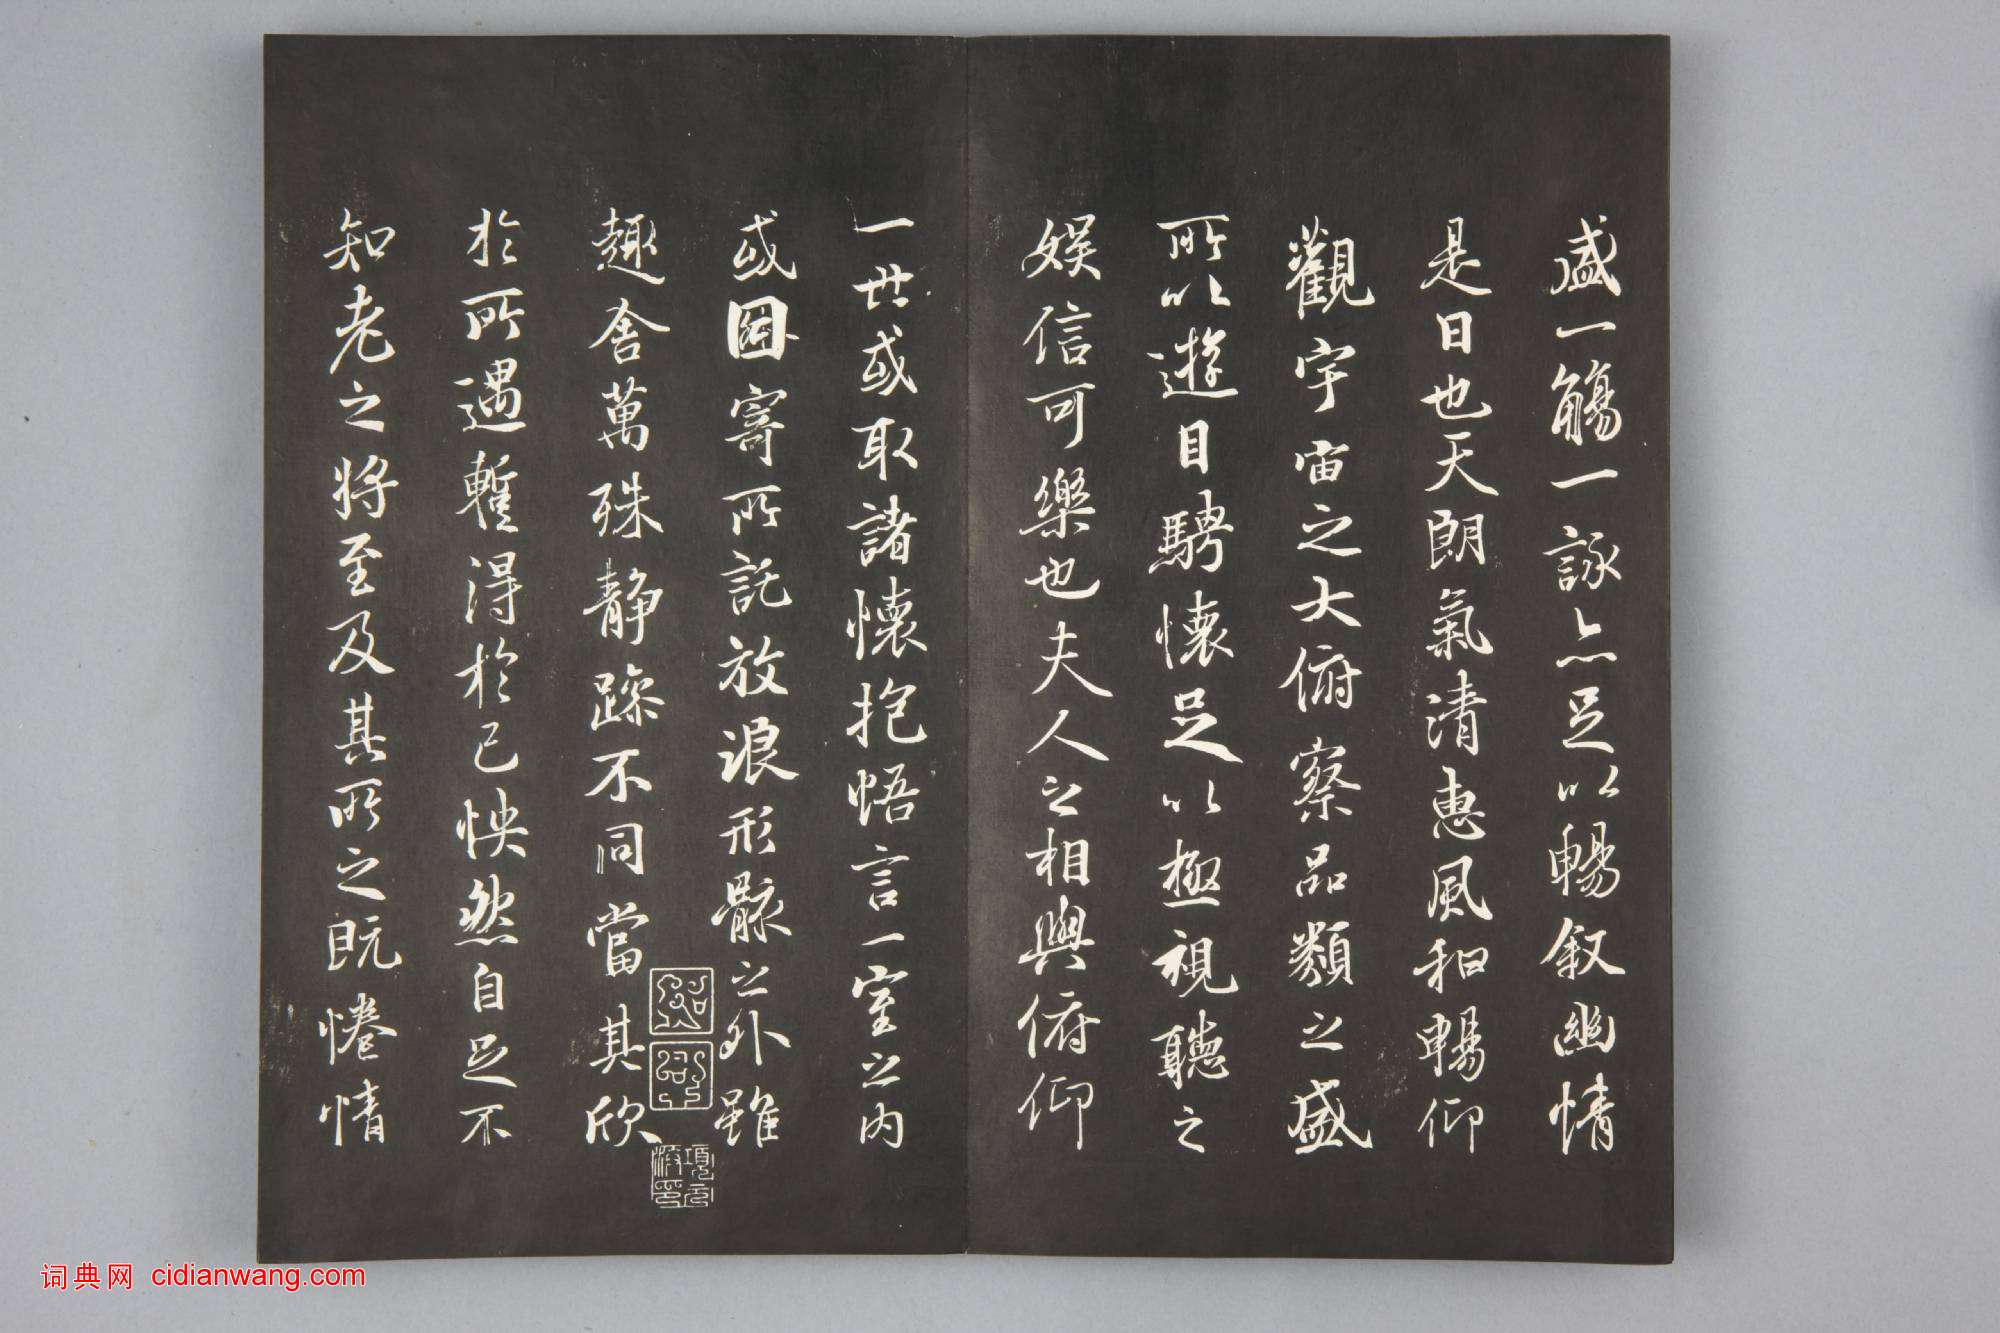 盛一觴一詠亦足以暢叙幽情
是日也天朗氣清惠風和暢仰
觀宇宙之大俯察品類之盛
所以遊目騁懷足以極視聽之
娱信可樂也夫人之相與俯仰
一世或取諸懷抱悟言一室之内
或因寄所託放浪形骸之外雖
趣舍萬殊静躁不同當其欣
於所遇暫得於己怏然自足不
知老之將至及其所之既惓情
詞典网 cidianwang.com